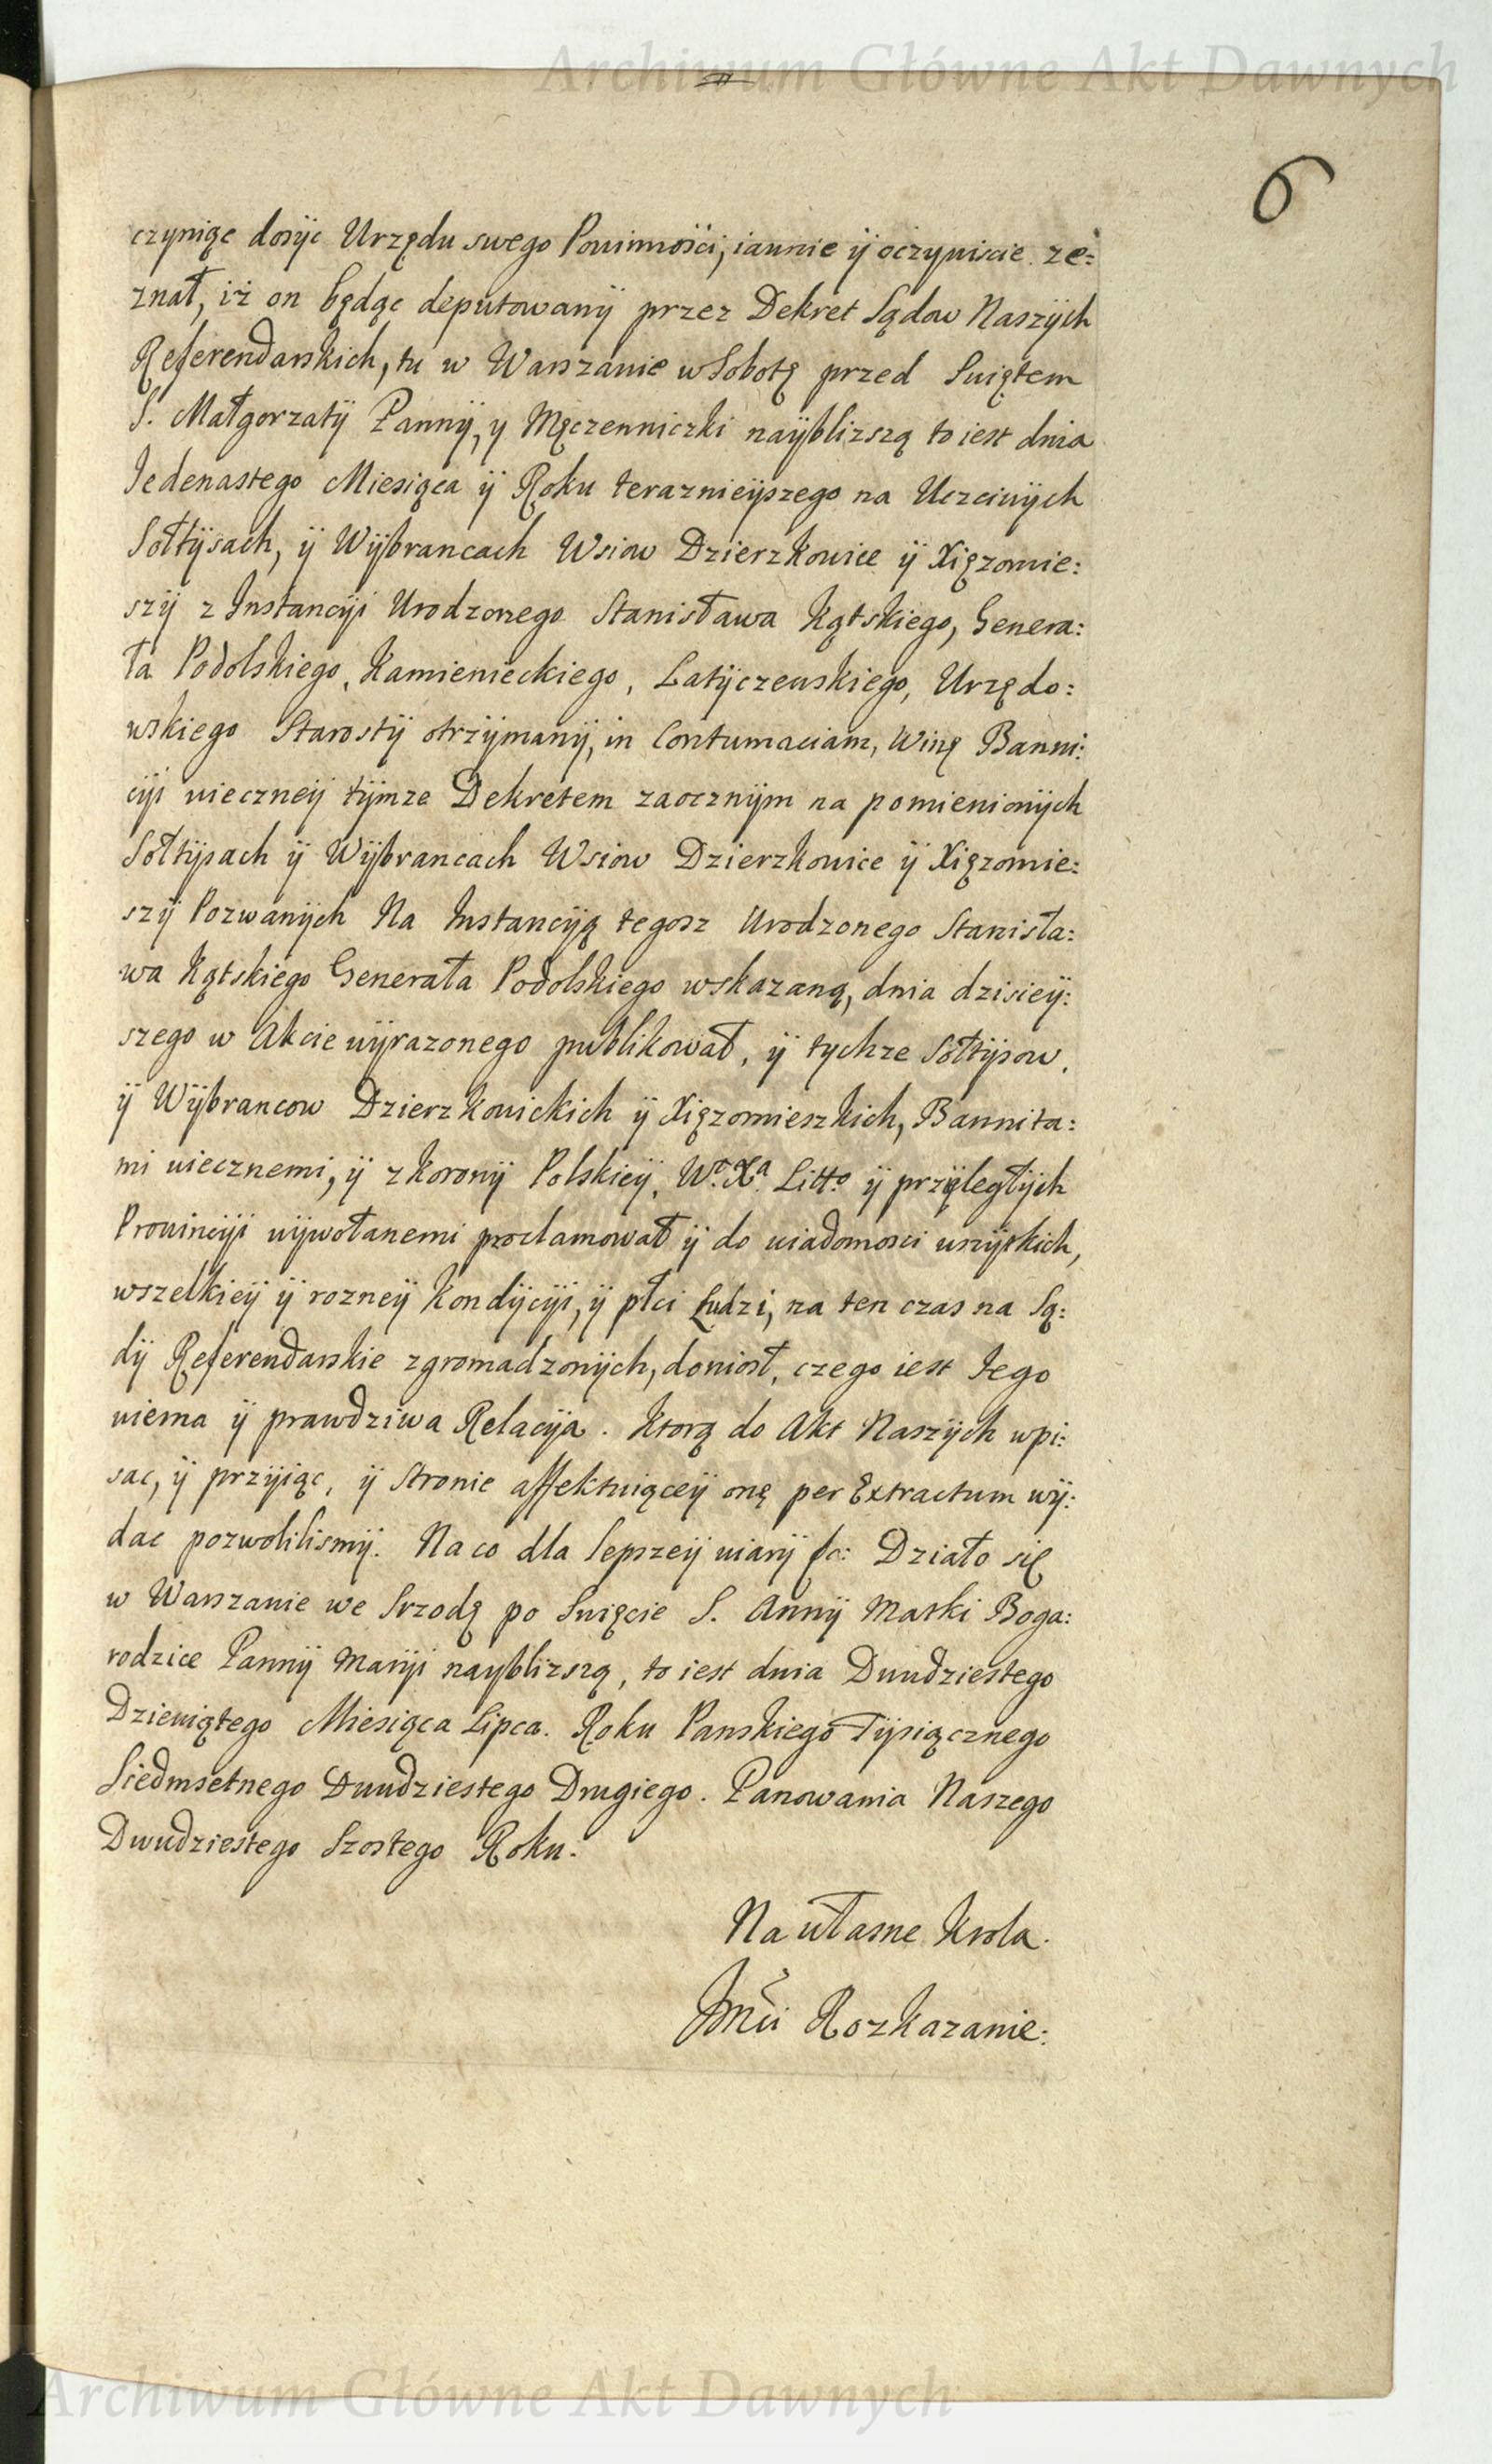 Archiwum Główne Akt Dawnych
6
czyniąc dosÿc Urzędu swego Powinnośći, iawnie ÿ oczywiscie ze:
znał, iż on będąc deputowanÿ przez Dekret Sądow Naszÿch
Referendarskich, tu w Warszawie w Sobotę przed Swiętem
S. Małgorzatÿ Pannÿ, y Męczenniczki naÿblizszą to iest dnia
Jedenastego Miesiąca ÿ Roku teraznieÿszego na Uczciwÿch
Sołtÿsach, ÿ Wÿbrancach Wsiow Dzierzkowice ÿ Xięzomie:
szÿ z Instancÿi Urodzonego Stanisława Kątskiego, Genera:
ła Podolskiego, Kamienieckiego, Latÿczewskiego, Urzędo:
wskiego Starostÿ otrzÿmanÿ, in Contumaciam, Winę Banni:
cÿi wieczneÿ tÿmze Dekretem zaocznÿm na pomienionÿch
Sołtÿsach ÿ Wÿbrancach Wsiow Dzierzkowice ÿ Xięzomie:
szÿ Pozwanÿch Na Instancÿą tegosz Urodzonego Stanisła:
wa Kątskiego Generała Podolskiego wskazaną, dnia dzisieÿ:
szego w Akcie wÿrazonego publikował, ÿ tychze Sołtÿsow,
ÿ Wÿbrancow Dzierzkowickich ÿ Xięzomieszkich, Bannita:
mi wiecznemi, ÿ z Koronÿ Polskieÿ, Wº. Xª. Littº ÿ przÿległÿch
Prowincÿi wÿwołanemi proclamował ÿ do wiadomosci wszÿstkich,
wszelkieÿ ÿ rozneÿ Kondÿcÿi, ÿ płci Ludzi, na ten czas na Są:
dÿ Referendarskie zgromadzonÿch, doniosł, czego iest Jego
wierna ÿ prawdziwa Relacÿa. Ktorą do Akt Naszÿch wpi:
sac, ÿ przÿiąc, ÿ Stronie affektuiąceÿ onę per Extractum wÿ:
dac pozwolilismÿ. Na co dla lepszeÿ wiarÿ &c: Działo się
w Warszawie we Srzodę po Swięcie S. Annÿ Matki Boga:
rodzice Pannÿ Marÿi nayblizszą, to iest dnia Dwudziestego
Dziewiątego Miesiąca Lipca. Roku Panskiego Tÿsiącznego
Siedmsetnego Dwudziestego Drugiego. Panowania Naszego
Dwudziestego Szostego Roku.
Na własne Krola
Jmći Rozkazanie:
Archiwum Główne Akt Dawnych